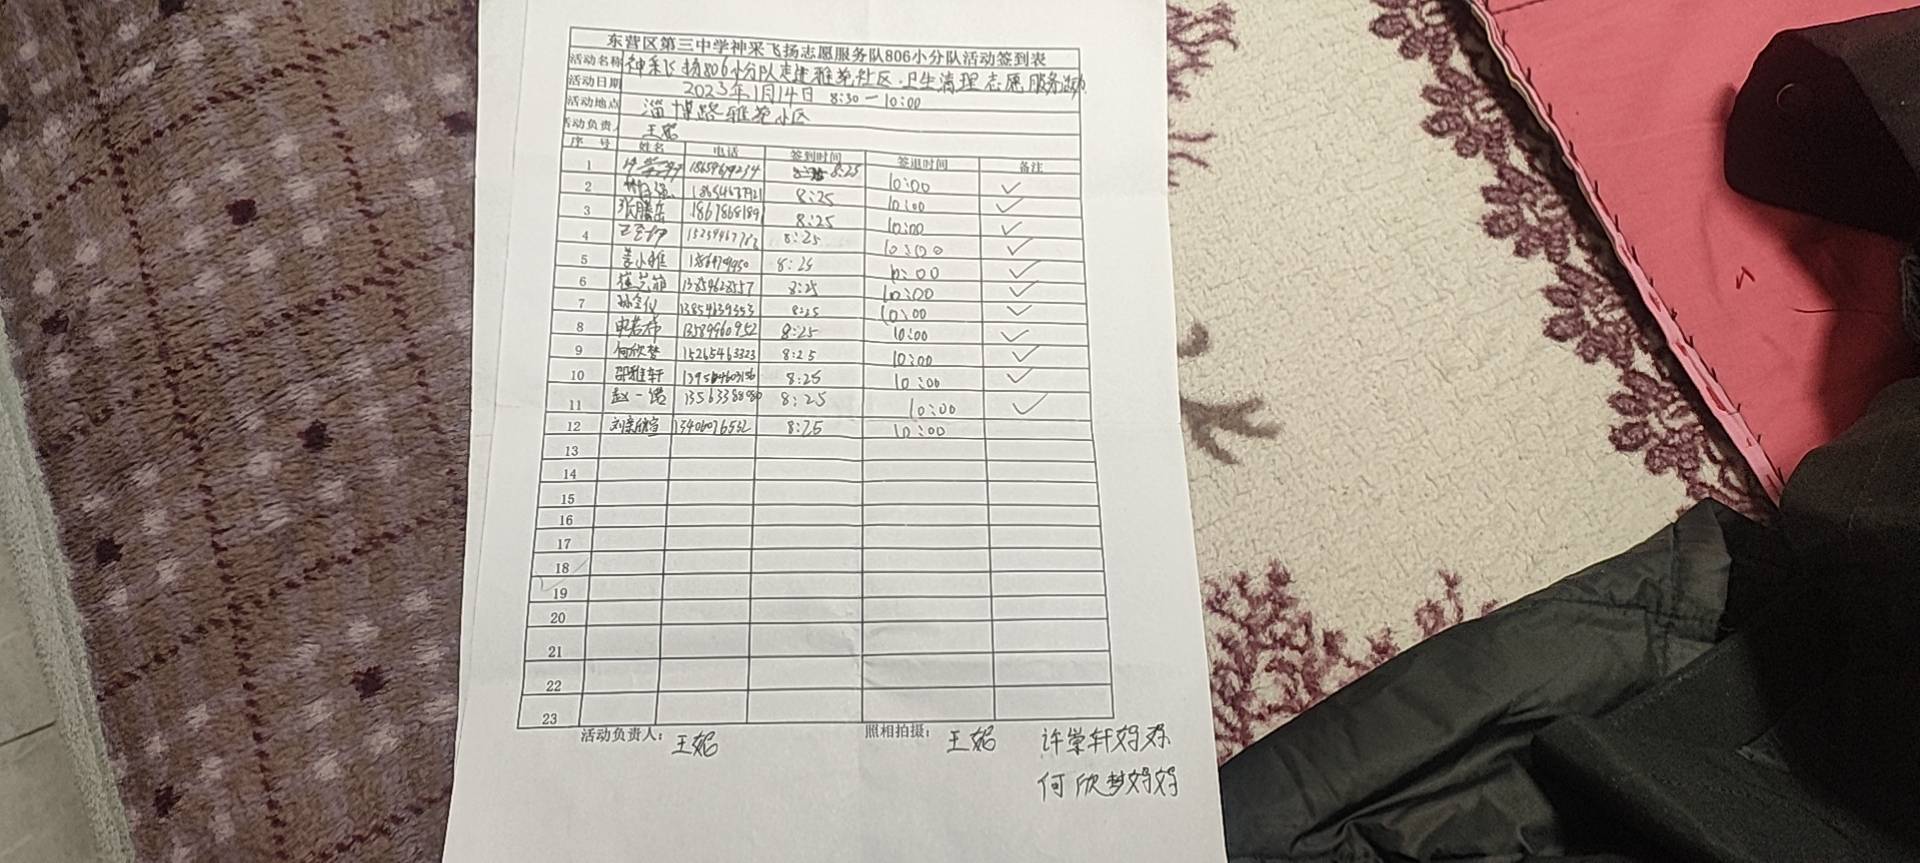 东营区第三中学神采飞扬志愿服务队806小分队活动签到表
活动名称 神采飞扬806小分队走进雅苑社区·卫生清理志愿服务活动
活动日期 2023年1月14日 8:30—10:00
活动地点 淄博路雅苑小区
活动负责人 王妮
序号 姓名 电话 签到时间 签退时间 备注
1 8:25 10:00 ✓
2 8:25 10:00 ✓
3 张腾岳 8:25 10:00 ✓
4 8:25 10:00 ✓
5 姜小雅 8:25 10:00 ✓
6 13854628557 8:25 10:00 ✓
7 13854639353 8:25 10:00 ✓
8 申若希 13589960952 8:25 10:00 ✓
9 何欣梦 15265463323 8:25 10:00 ✓
10 邵雅轩 8:25 10:00 ✓
11 赵一诺 8:25 10:00 ✓
12 13406076532 8:25 10:00
13
14
15
16
17
18
19
20
21
22
23
活动负责人: 王妮 照相拍摄: 王妮 许棠轩妈妈
何欣梦妈妈